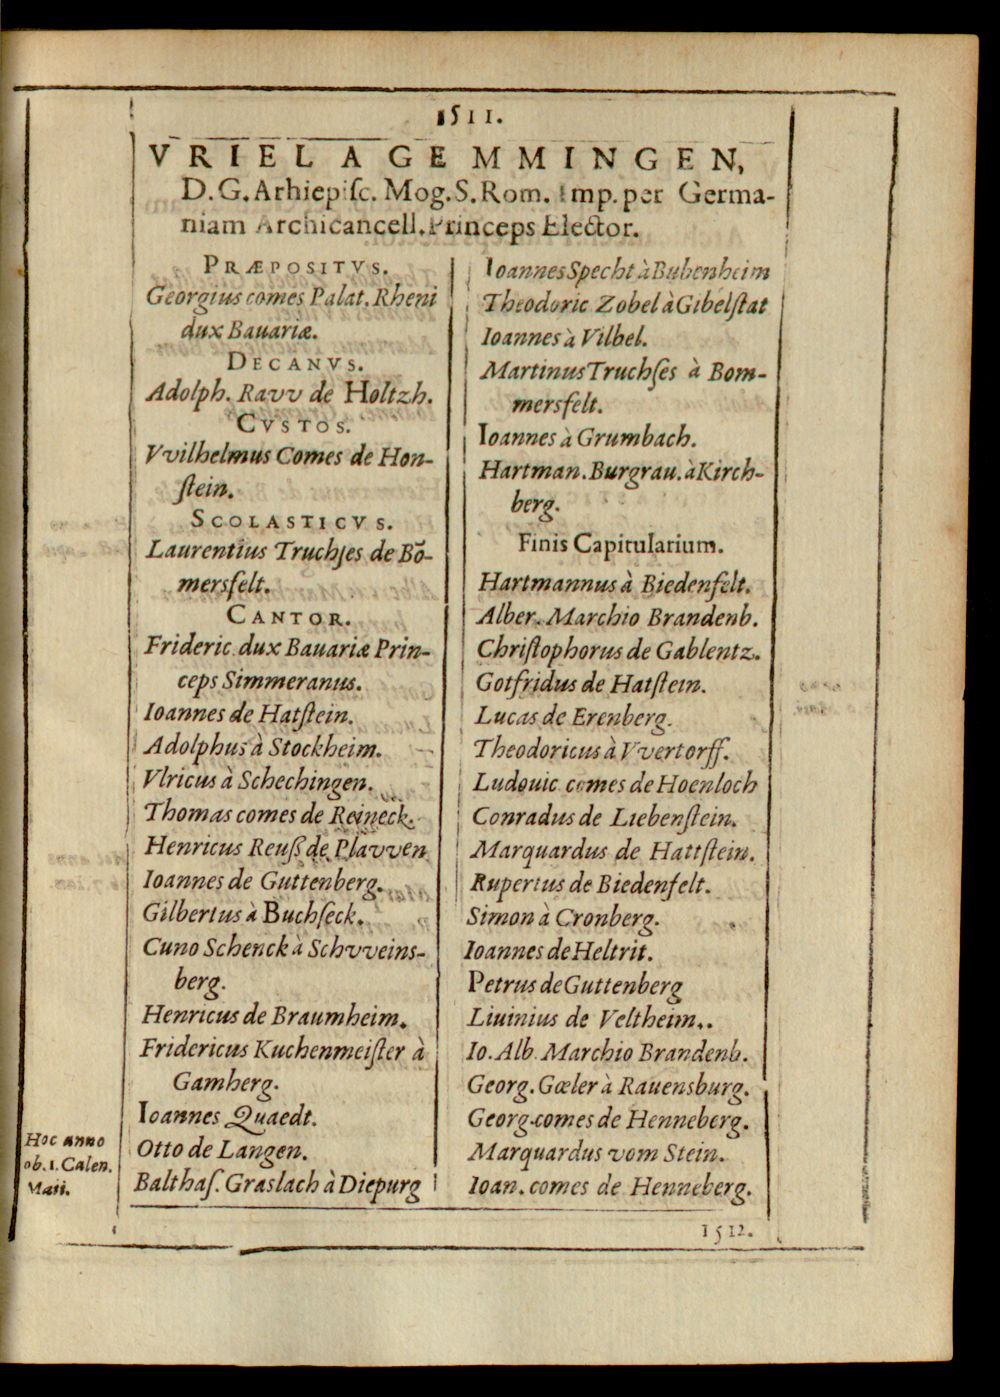 1511.
VRIEL A GEMMINGEN,
D.G. Arhiepiſc. Mog. S. Rom. Imp. per Germa-
niam Archicancell. Princeps Elector.
PRÆPOSITVS.
Georgius comes Palat. Rheni
dux Bauariæ.
DECANVS.
Adolph. Ravv de Holtzh.
CVSTOS.
Vvilhelmus Comes de Hon-
ſtein.
SCOLASTICVS.
Laurentius Truchſes de Bõ-
mersfelt.
CANTOR.
Frideric. dux Bauariæ Prin-
ceps Simmeranus.
Ioannes de Hatſtein.
Adolphus à Stockheim.
Vlricus à Schechingen.
Thomas comes de Reineck.
Henricus Reuß de Plavven
Ioannes de Guttenberg.
Gilbertus à Buchſeck.
Cuno Schenck à Schvveins-
berg.
Henricus de Braumheim.
Fridericus Kuchenmeiſter à
Gamherg.
Ioannes Quaedt.
Hoc anno
ob. 1. Calen.
Maii.
Otto de Langen.
Balthaſ. Graslach à Diepurg
Ioannes Specht à Bubenheim
Theodoric Zobel à Gibelſtat
Ioannes à Vilbel.
Martinus Truchſes à Bom-
mersfelt.
Ioannes à Grumbach.
Hartman. Burgrau. à Kirch-
berg.
Finis Capitularium.
Hartmannus à Biedenfelt.
Alber. Marchio Brandenb.
Chriſtophorus de Gablentz.
Gotfridus de Hatſtein.
Lucas de Erenberg.
Theodoricus à Vvertorff.
Ludouic comes de Hoenloch
Conradus de Liebenſtein.
Marquardus de Hattſtein.
Rupertus de Biedenfelt.
Simon à Cronberg.
Ioannes de Heltrit.
Petrus de Guttenberg
Liuinius de Veltheim..
Io. Alb. Marchio Brandenb.
Georg. Gœler à Rauensburg.
Georg. comes de Henneberg.
Marquardus vom Stein.
Ioan. comes de Henneberg.
1512.